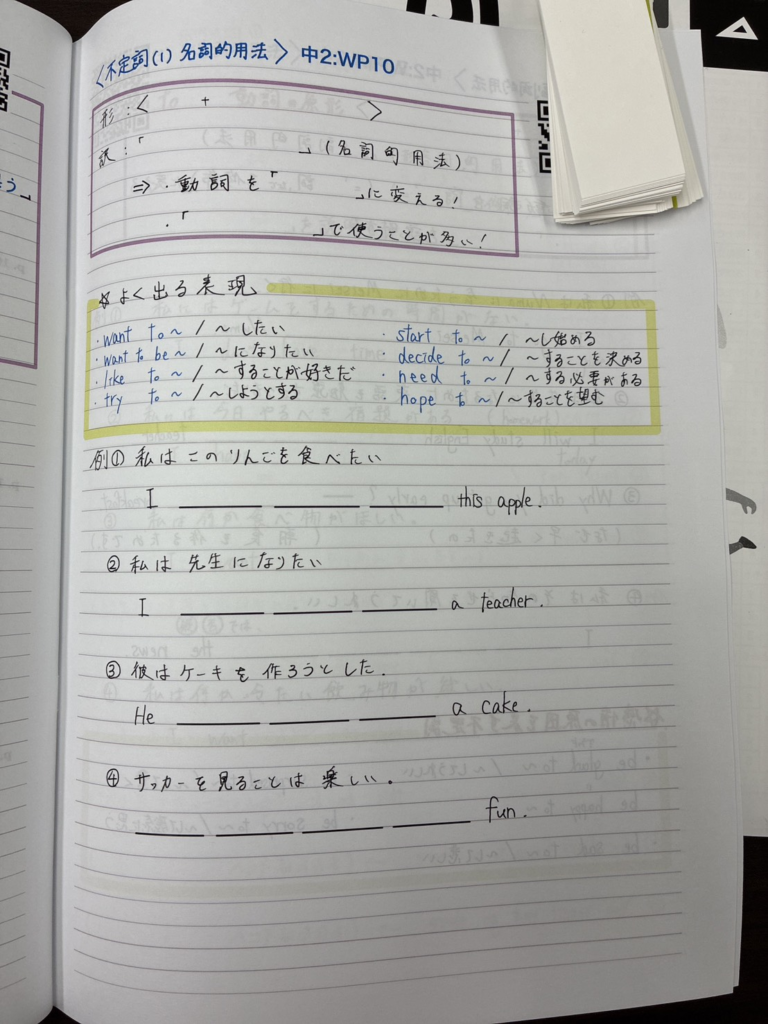 〈不定詞(1) 名詞的用法〉 中2:WP10
形:〈 + 〉
訳:「 」(名詞的用法)
⇒ ・動詞を「 」に変える!
・「 」で使うことが多い!
☆よく出る表現
・want to~ / ~したい
・want to be~ / ~になりたい
・like to~ / ~することが好きだ
・try to~ / ~しようとする
・start to~ / ~し始める
・decide to~ / ~することを決める
・need to~ / ~する必要がある
・hope to~ / ~することを望む
例① 私はこのりんごを食べたい
I ____ ____ ____ this apple.
② 私は先生になりたい
I ____ ____ ____ a teacher.
③ 彼はケーキを作ろうとした.
He ____ ____ ____ a cake.
④ サッカーを見ることは楽しい.
____ ____ ____ ____ fun.